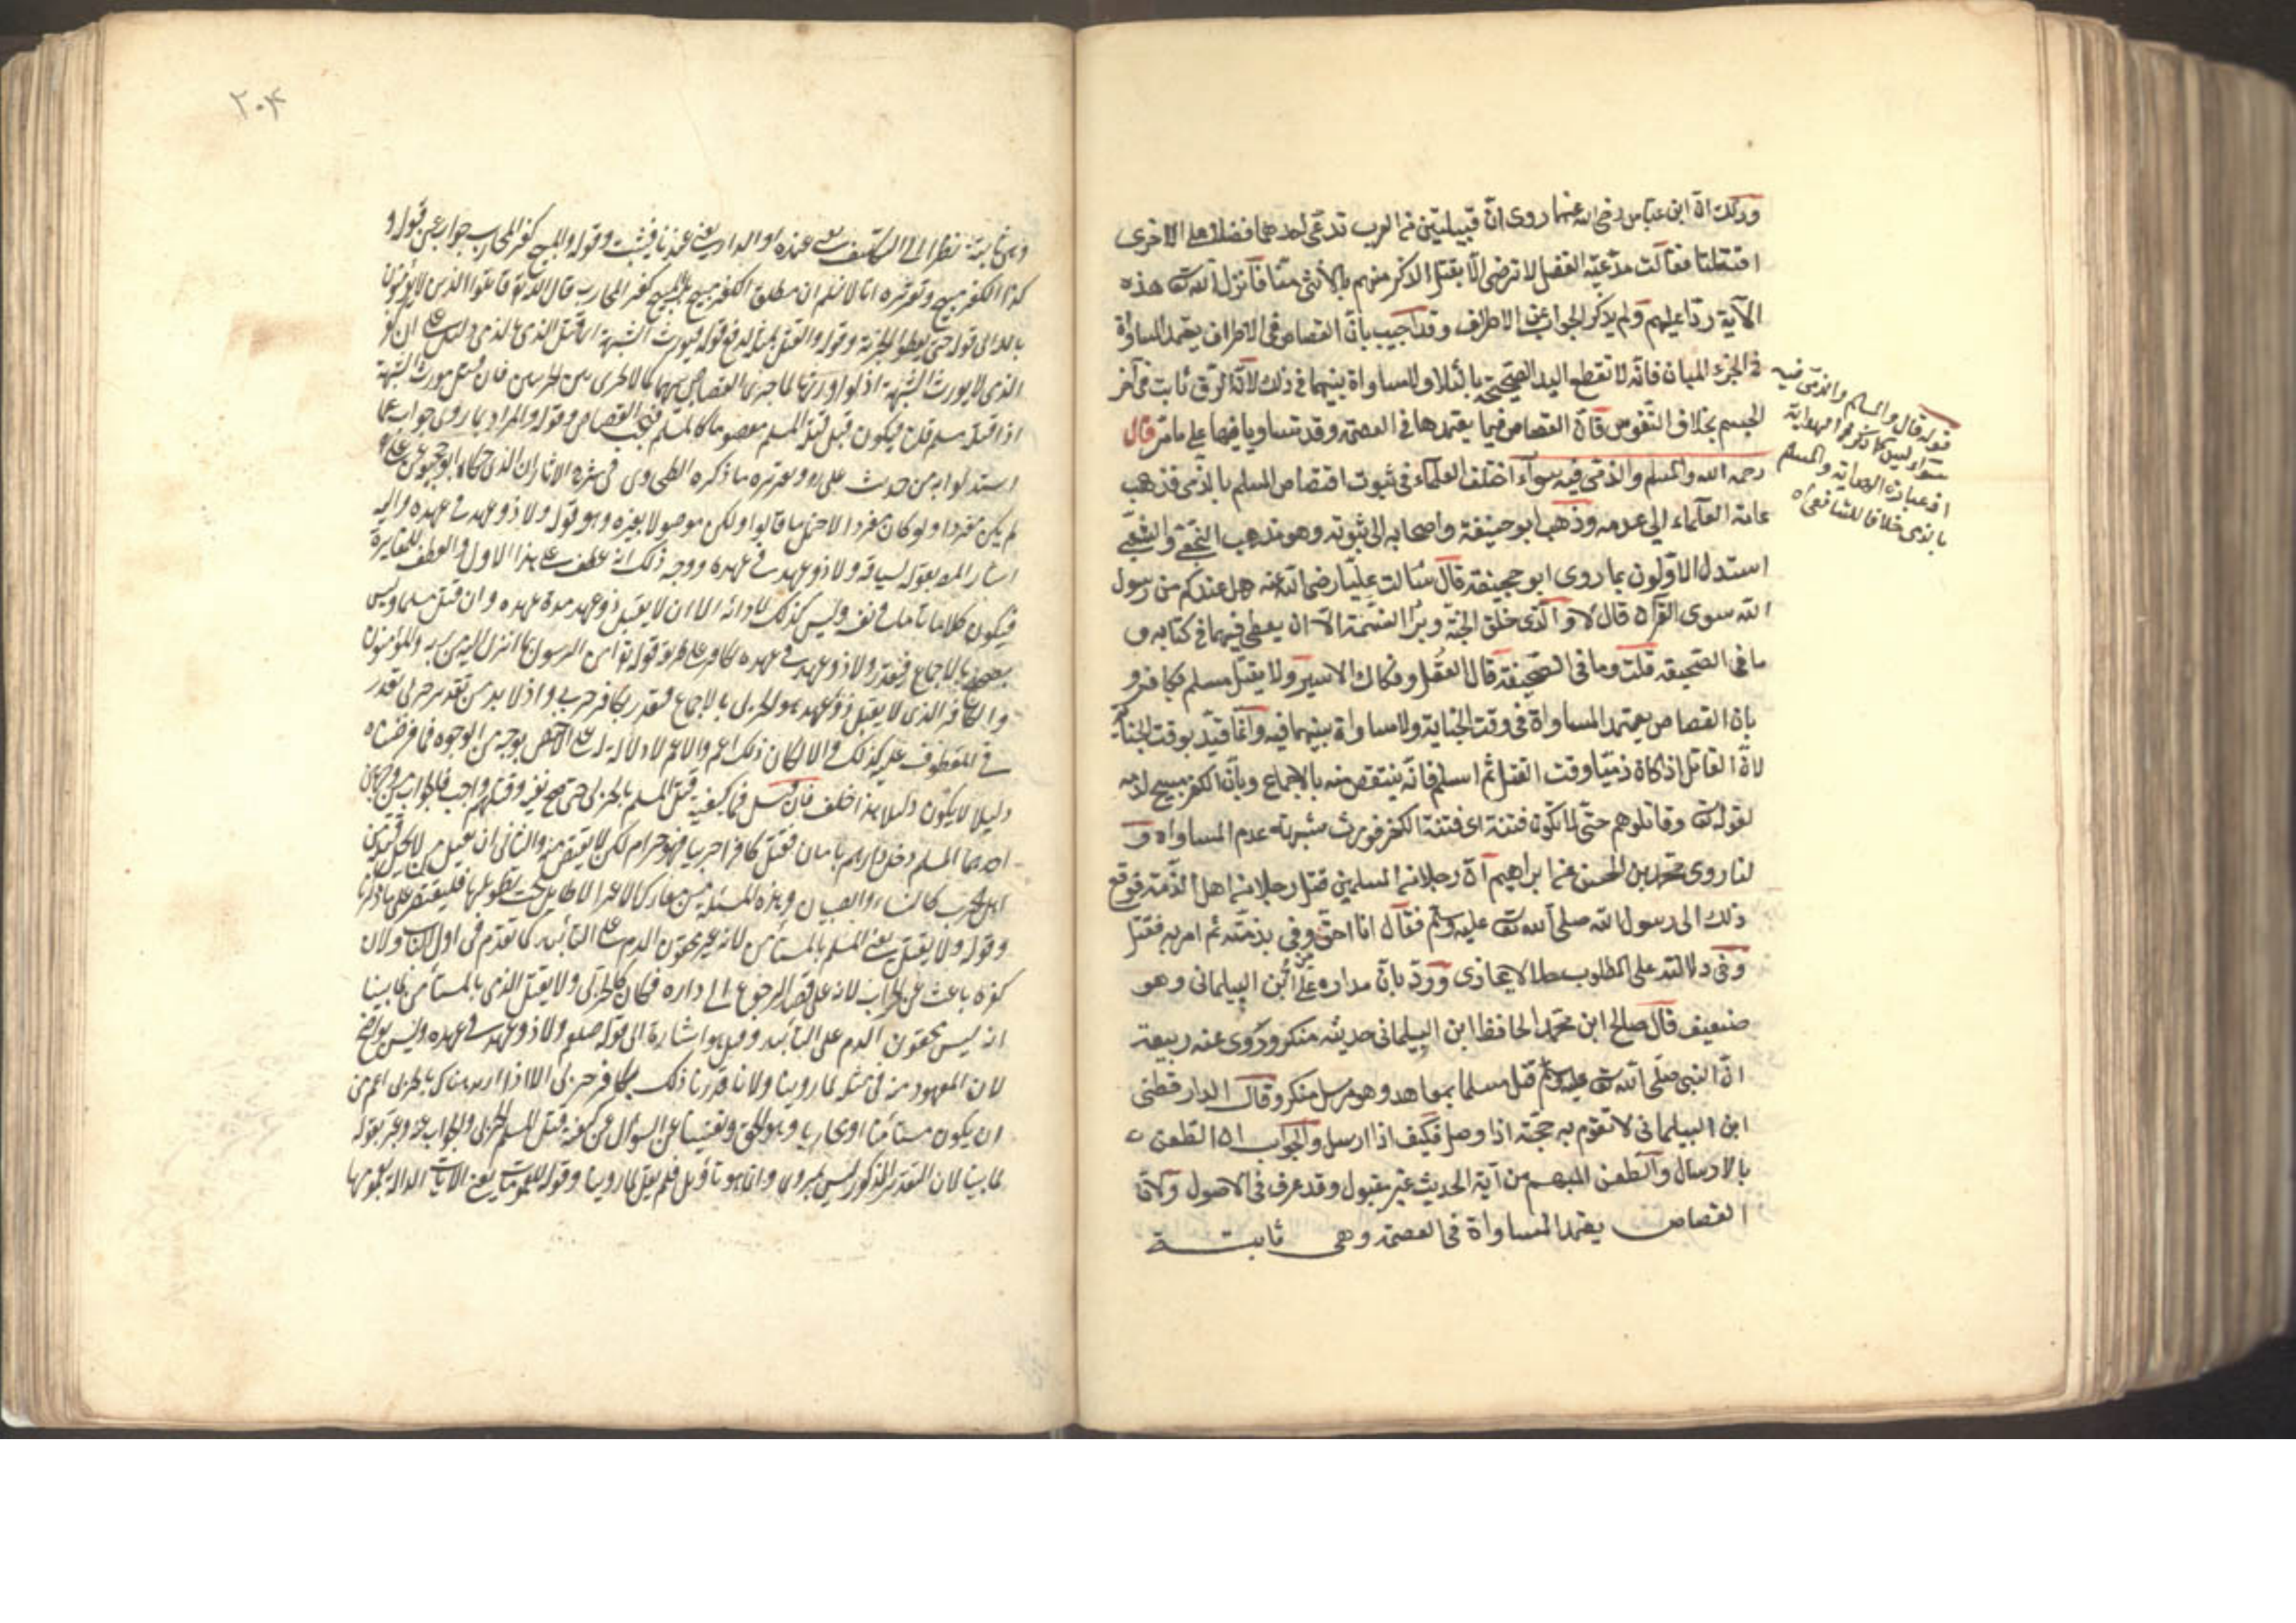 وذلك ان ابن عباس رضى الله عنهما روى ان قبيلتين من العرب تدعى احدهما فضلا على الاخرى
اقتتلتا فقالت مدعية الفضل لا نرضى الا بقتل الذكر منهم بالأنثى منا فانزل الله تعالى هذه
الآية ردا عليهم ولم يذكر الجواب عن الاطراف وقد اجيب بان القصاص فى الاطراف يعتمد المساواة
فى الجزء المبان فانه لا تقطع اليد الصحيحة بالشلاء ولا مساواة بينهما فى ذلك لان الرق ثابت فى آخر
الجسم بخلاف النفوس فان القصاص فيها يعتمدها فى العصمة وقد تساويا فيها على ما مر قال
رحمه الله والمسلم والذمى فيه سوآء اختلف العلماء فى ثبوت اقتصاص المسلم بالذمى فذهب
عامة العلماء الى عدمه وذهب ابو حنيفة واصحابه الى ثبوته وهو مذهب النخعى والشعبى
استدل الاولون بما روى ابو جحيفة قال سألت عليا رضى الله عنه هل عندكم من رسول
الله سوى القرآن قال لا والذى خلق الجنة وبرأ النسمة الا ان يعطى فهما فى كتابه و
ما فى الصحيفة قلت وما فى الصحيفة قال العقل وفكاك الاسير ولا يقتل مسلم بكافر و
بان القصاص يعتمد المساواة فى وقت الجناية ولا مساواة بينهما فيه وانما قيد بوقت الجناية
لان القاتل اذا كان ذميا وقت القتل ثم اسلم فانه يقتص منه بالاجماع وبان الكفر مبيح لدمه
لقوله تعالى وقاتلوهم حتى لا تكون فتنة اى فتنة الكفر فيورث شبهة عدم المساواة و
لنا روى محمد بن الحسن عن ابراهيم ان رجلا من المسلمين قتل رجلا من اهل الذمة فرفع
ذلك الى رسول الله صلى الله تعالى عليه وسلم فقال انا احق من وفى بذمته ثم امر به فقتل
وفى دلالته على المطلوب ورد بان مداره على ابن البيلمانى وهو
ضعيف قال صالح ابن محمد الحافظ ابن البيلمانى حديثه منكر وروى عنه ربيعة
ان النبى صلى الله تعالى عليه وسلم قتل مسلما بمعاهد وهو مرسل منكر وقال الدار قطنى
ابن البيلمانى لا تقوم به حجة اذا وصل فكيف اذا ارسل والجواب ان الطعن
بالارسال والطعن المبهم من آية الحديث غير مقبول وقد عرف فى الاصول ولان
القصاص يعتمد المساواة فى العصمة وهى ثابتة
قوله قال والمسلم والذمى فيه
سواء ليس كذا فى الهداية
اذ عبارة الهداية والمسلم
بالذمى خلافا للشافعى
٢٠٤
وهى ثابتة نظرا الى التكليف يعنى عنده او الدار يعنى عندنا فيثبت وقوله والمبيح كفر المحارب جواب عن قوله و
كذا الكفر مبيح وتقريره انا لا نسلم ان مطلق الكفر مبيح بل المبيح كفر المحارب قال الله تعالى قاتلوا الذين لا يؤمنون
بالله الى قوله حتى يعطوا الجزية وقوله والقتل بمثله دفع قوله فيورث الشبهة اى قتل الذمى بالذمى دليل على ان كفر
الذمى لا يورث الشبهة اذ لو اورثها لما جرى القصاص بينهما كما لا يجرى بين الحربيين فان قيل مورث الشبهة
اذا قتله مسلم قلنا فيكون قبل قتل المسلم معصوما كالمسلم فيجب القصاص وقوله والمراد بما روى جواب عما
استدلوا به من حديث على رض وتقريره ما ذكره الطحاوى فى شرح الاثار ان الذى حكاه ابو جحيفة عن على
لم يكن مفردا ولو كان مفردا لاحتمل ما قالوا ولكن موصولا بغيره وهو قوله ولا ذو عهد فى عهده واليه
اشار المصـ بقوله لسياقه ولا ذو عهد فى عهده ووجه ذلك انه عطف على هذا الاول والعطف للمغايرة
فيكون كلاما تاما فى نفسه وليس كذلك لادائه الى ان لا يقتل ذو عهد مدة عهده وان قتل مسلما وليس
بصحيح بالاجماع فيقدر ولا ذو عهد فى عهده بكافر على طريقة قوله تعالى امن الرسول بما انزل اليه من ربه والمؤمنون
والكافر الذى لا يقتل به ذو عهد هو الحربى بالاجماع فيقدر بكافر حربى واذ لا بد من تقدير حربى يقدر
فى المعطوف عليه كذلك والا لكان ذلك اعم والاعم لا دلالة له على الاخص بوجه من الوجوه فما فرضناه
دليلا لا يكون دليلا هذا خلف فان قيل فما كيفية قتل المسلم بالحربى حتى صح نفيه وقتلهم واجب فالجواب من وجهين
احدهما المسلم دخل دارهم بامان فقتل كافرا حربيا فهو حرام لكن لا يقتص منه والثانى ان يقتل من لا يحل قتله من
اهل الحرب كالنساء والصبيان وهذه المسئلة من معارك تطويلها فليقتصر على ما ذكرنا
وقوله ولا يقتل يعنى المسلم بالمستأمن لانه غير محقون الدم على التأبيد كما تقدم فى اول الباب ولان
كفره باعث على الحراب لانه على قصد الرجوع الى داره فكان كالحربى ولا يقتل الذمى بالمستأمن لما بينا
انه ليس بمحقون الدم على التأبيد وقيل هو اشارة الى قوله صلعم ولا ذو عهد فى عهده وليس بواضح
لان المعهود منه فى مثله لما روينا ولانا قدرنا ذلك بكافر حربى الا اذا اريد هناك بالحربى اعم من
ان يكون مستأمنا او محاربا وهو الحق عن السؤال عن كيفية قتل المسلم الحربى والجواب عنه وعبر بقوله
لما بينا لان التقدير المذكور ليس بمروى وانما هو تأويل فلم يقل لما روينا وقوله للعمومات يعنى الآيات الدالة بعمومها